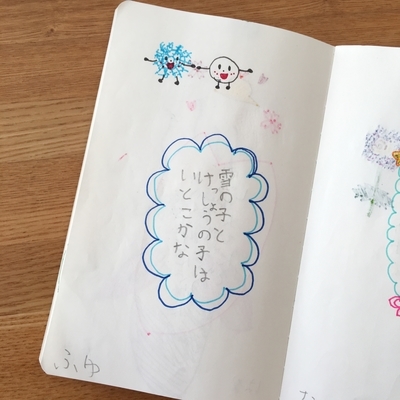 雪の子と
けっしょうの子は
いとこかな
ふゆ